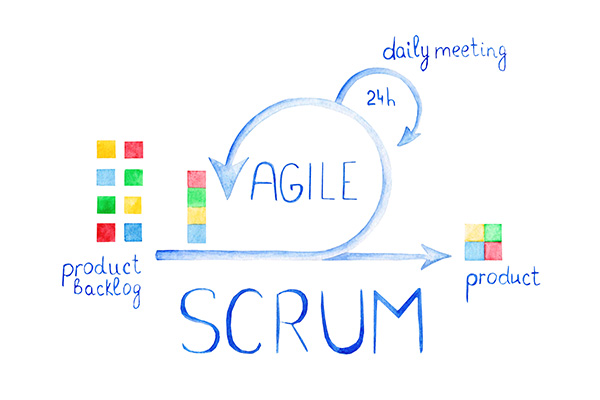 daily meeting
24h
AGILE
product
backlog
product
SCRUM